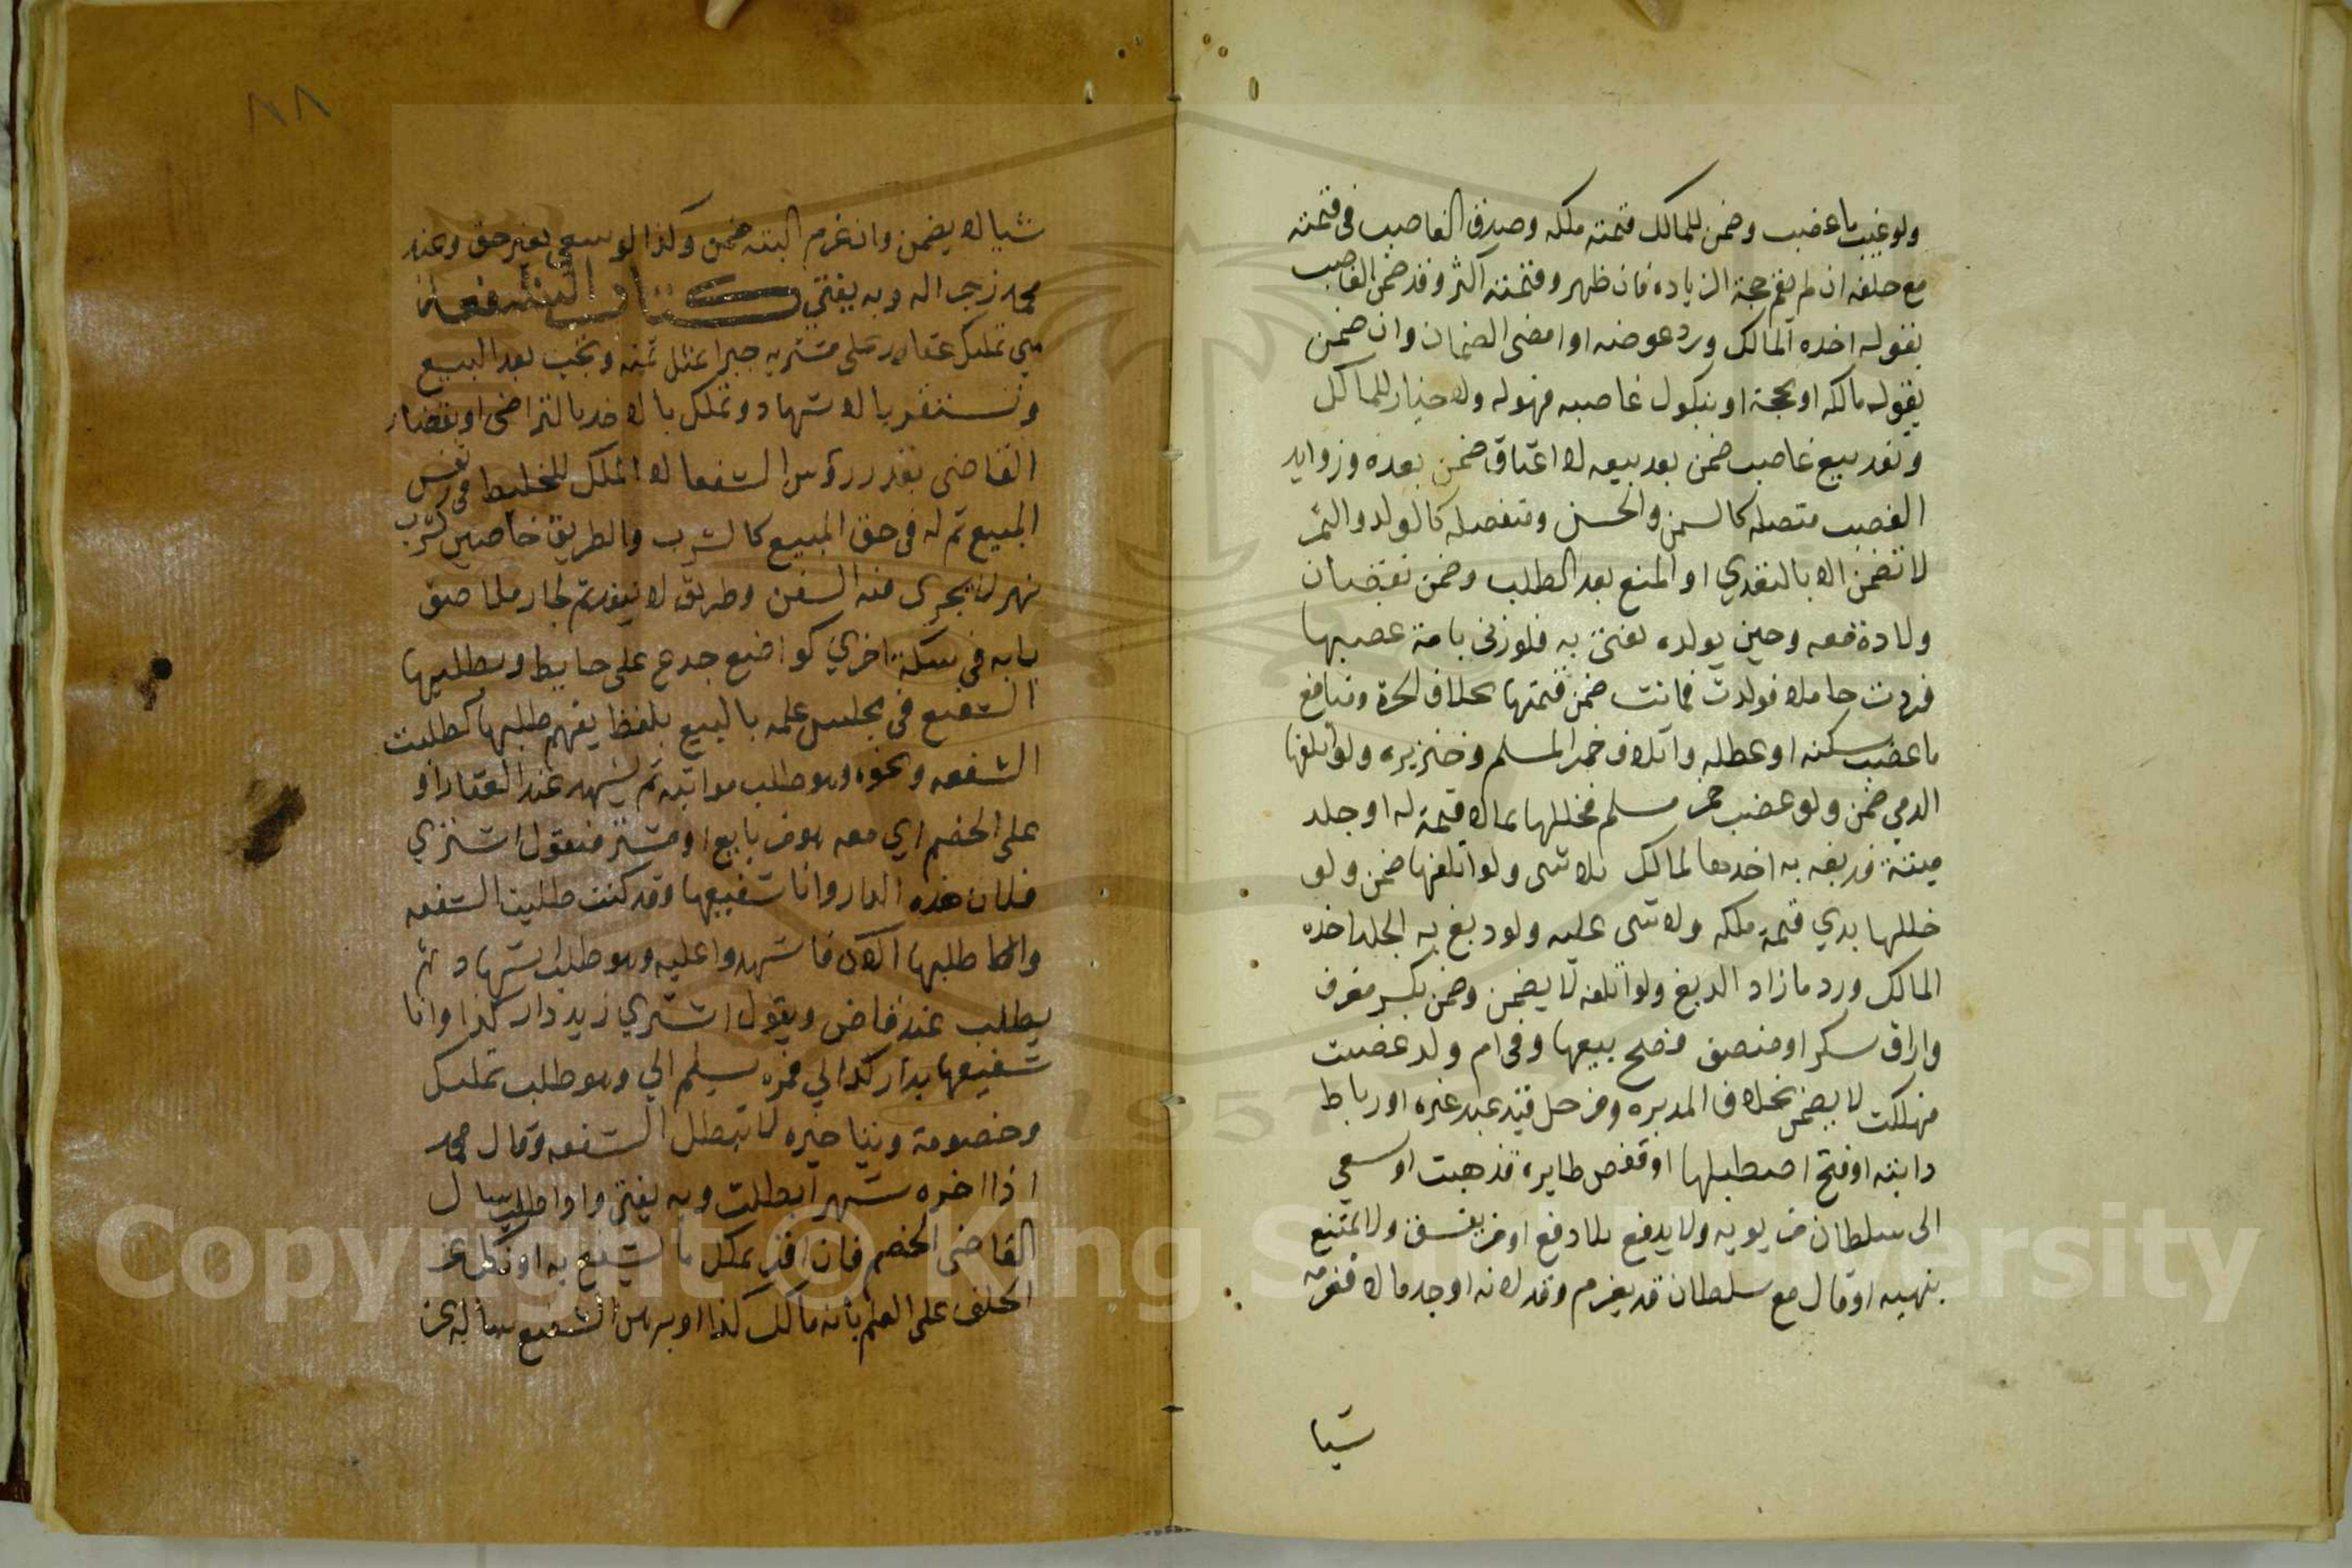 ولو غيب ما غصب وضمن للمالك قيمته ملكه وصدق الغاصب في قيمته
مع حلفه ان لم يقم حجة الزيادة فان ظهر وقيمته اكثر وقد ضمن الغاصب
بقوله اخذه المالك ورد عوضه او امضى الضمان وان ضمن
بقول مالكه او بحجة او بنكول غاصبه فهو له ولا خيار للمالك
ونفد بيع غاصب ضمن بعد بيعه لا اعتاق ضمن بعده وزوايد
الغصب متصله كالسمن والحسن ومنفصله كالولد والثمر
لا تضمن الا بالتعدي او المنع بعد الطلب وضمن نقصان
ولادة معه وحين بولده يفتى به فلو زنى بامة غصبها
فردت حاملا فولدت فماتت ضمن قيمتها بخلاف الحرة ومنافع
ما غصب سكنه او عطله واتلاف خمر المسلم وخنزيره ولو اتلفها
الدمي ضمن ولو غصب خمر مسلم فخللها بما لا قيمة له او جلد
ميتة فدبغه به اخدهما المالك بلا شى ولو اتلفها ضمن ولو
خللها بدي قيمة ملكه ولا شى عليه ولو دبغ به الجلد اخذه
المالك ورد ما زاد الدبغ ولو اتلفه لا يضمن وضمن بكسر معزف
واراق سكر او منصف وصح بيعها وفي ام ولد غصبت
فهلكت لا يضمن بخلاف المدبره ومن حل قيد عبد غيره او رباط
دابته او فتح اصطبلها او قفص طايره فذهبت او سعي
الى سلطان من يوديه ولا يدفع بلا رفع او من يفسق ولا يمتنع
بنهيه او قال مع سلطان قد يغرم وقد لانه او جد مالا فغرمه
شيا
٨٨
شيا لا يضمن وان غرم البته ضمن وكذا لو سعي بغير حق وعند
محمد زجرا له وبه يفتي كتاب الشفعة
هي تمليك عقار على مشتريه جبرا بمثل ثمنه وتجب بعد البيع
وتستقر بالاشهاد وتملك بالاخد بالتراضى او بقضاء
القاضى بقدر رؤس الشفعا لا الملك للخليط في نفس
المبيع ثم له في حق المبيع كالشرب والطريق خاصين كشرب
نهر لا يجري فيه السفن وطريق لا ينفد ثم لجار ملاصق
بابه في سكة اخري كواضع جدع على حايط ويطلبها
الشفيع في مجلس علمه بالبيع بلفظ يفهم طلبها كطلبت
الشفعه ونحوه وهو طلب مواثبه ثم يشهد عند العقار او
على الخصم اي معه هو من بايع او مشتر فيقول اشتري
فلان هذه الدار وانا شفيعها وقد كنت طلبت الشفعه
واطلبها الان فاشهدوا عليه وهو طلب اشهاد ثم
يطلب عند قاض ويقول اشتري زيد دار كذا وانا
شفيعها بدار كذا لي فمره يسلم الي وهو طلب تمليك
وخصومة وبتاخيره لا تبطل الشفعه وقال محمد
اذا اخره شهرا بطلت وبه يفتى واذا طلب سال
القاضى الخصم فان اقر بملك ما يشفع به او نكل عن
الحلف على العلم بانه مالك كذا او برهن الشفيع ساله عن